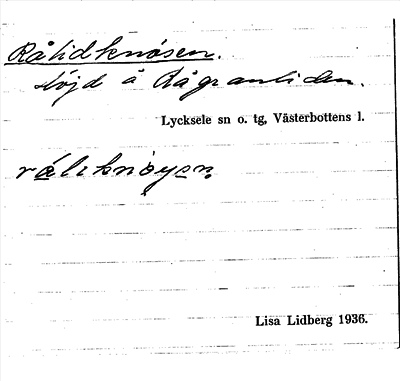 Rålidknösen.
höjd å Rågranliden.
Lycksele sn o. tg, Västerbottens l.
Lisa Lidberg 1936.